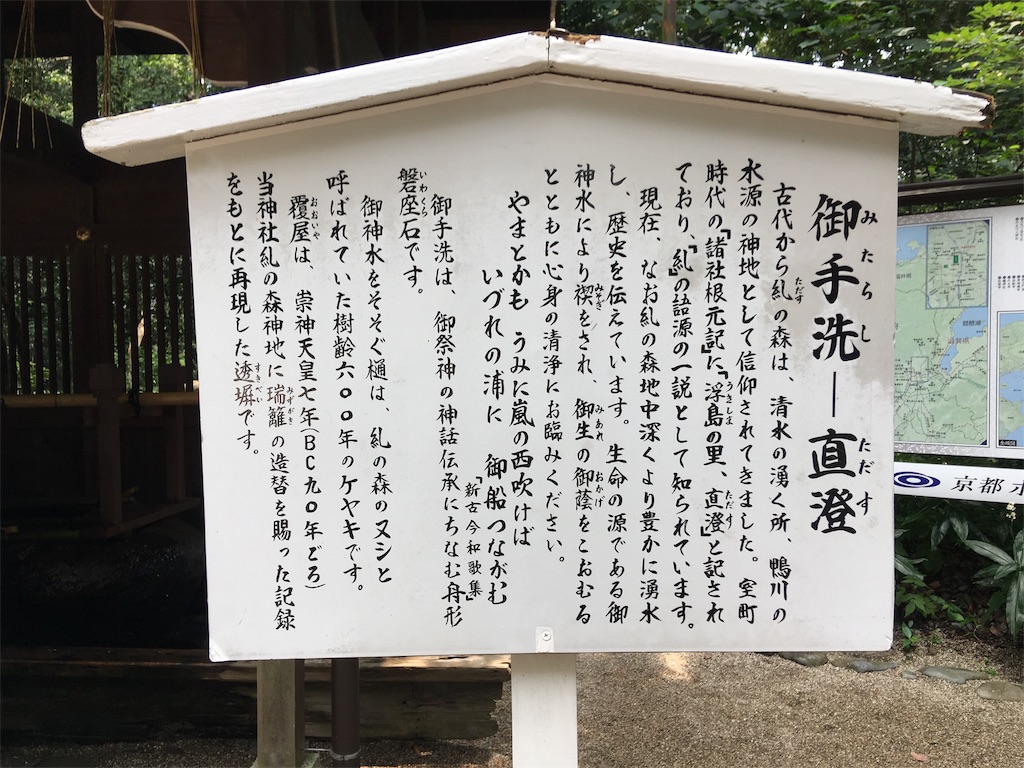 御手洗―直澄
みたらし
ただす
古代から糺の森は、清水の湧く所、鴨川の
ただす
水源の神地として信仰されてきました。室町
時代の「諸社根元記」に、「浮島の里、直澄」と記され
うきしま
ただす
ており、「糺」の語源の一説として知られています。
現在、なお糺の森地中深くより豊かに湧水
し、歴史を伝えています。生命の源である御
神水により禊をされ、御生の御蔭をこおむる
みそぎ
みあれ
おかげ
とともに心身の清浄にお臨みください。
やまとかも うみに嵐の西吹けば
いづれの浦に 御船つながむ
「新古今和歌集」
御手洗は、御祭神の神話伝承にちなむ舟形
磐座石です。
いわくら
御神水をそそぐ樋は、糺の森のヌシと
呼ばれていた樹齢六〇〇年のケヤキです。
覆屋は、崇神天皇七年(BC九〇年ごろ)
おおいや
当神社糺の森神地に瑞籬の造替を賜った記録
みずがき
をもとに再現した透塀です。
すきべい
京都